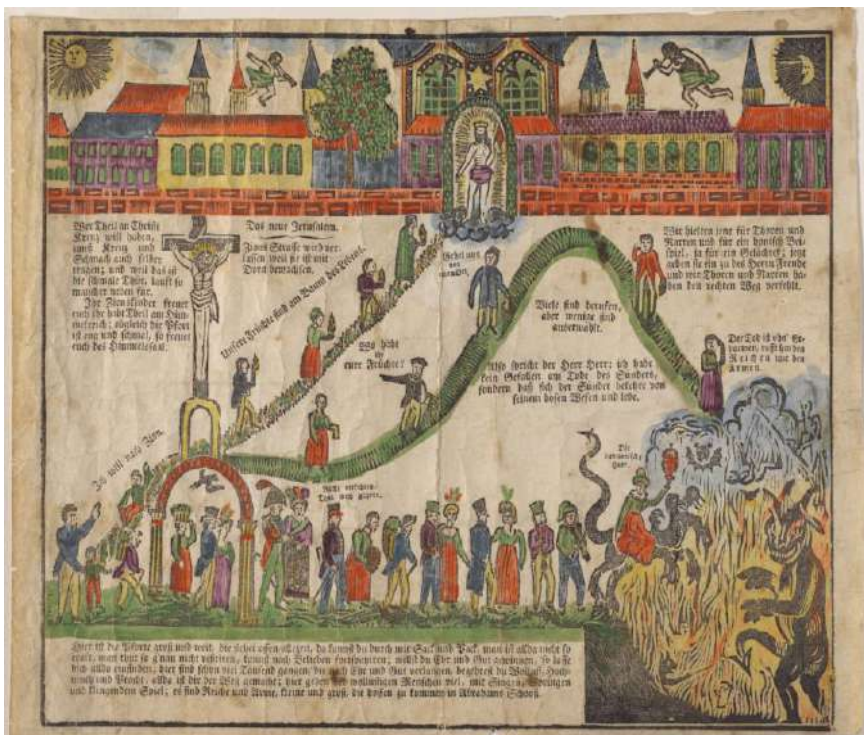 Wer Theil an Christi
Kreuz will haben,
muß Kreuz und
Schmach auch selber
tragen; und weil das ist
die schmale Thür, lauft so
mancher neben für.
Ihr Zionskinder freuet
euch ihr habt Theil am Him-
melreich; obgleich die Pfort
ist eng und schmal, so freuet
euch des Himmelssaal.
Das neue Jerusalem.
Zions Strasse wird ver-
lassen weil sie ist mit
Dorn bewachsen.
Unsere Früchte sind am Baum des Lebens.
Gehet aus
von
Wir hielten jene für Thoren und
Narren und für ein hönisch Bei-
spiel, ja für ein Gelächter; jetzt
gehen sie ein zu des Herrn Freude
und wir Thoren und Narren ha-
ben den rechten Weg verfehlt.
Viele sind berufen,
aber wenige sind
auserwählt.
Wo habt
ihr
eure Früchte?
Also spricht der Herr Herr: ich habe
kein Gefallen am Tode des Sünders,
sondern daß sich der Sünder bekehre von
seinem bösen Wesen und lebe.
Der Tod ist ohn' Er-
barmen, rafft hin den
Reichen wie den
Armen.
Ich will nach Zion.
Die
Hur.
Hier ist die Pforte groß und weit, die stehet offen allezeit, da kannst du durch mit Sack und Pack, man ist allda nicht so
exakt, man thut so g'nau nicht visitiren, kannst nach Belieben fortspatzieren; willst du Ehr und Gut gewinnen, so lasse
dich allda einfinden, hier sind schon viel Tausend gangen, die nach Ehr und Gut verlangen, begehrest du Wollust, Hoch-
muth und Pracht, allda ist dir der Weg gemacht; hier gehen der wollüstigen Menschen viel, mit Singen, Springen
und klingendem Spiel; es sind Reiche und Arme, kleine und groß, die hoffen zu kommen in Abrahams Schooß.